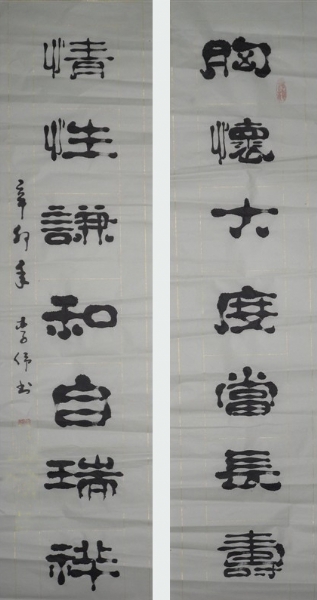 胸懷大度當長壽
情性謙和自瑞祥
辛卯年李伟书